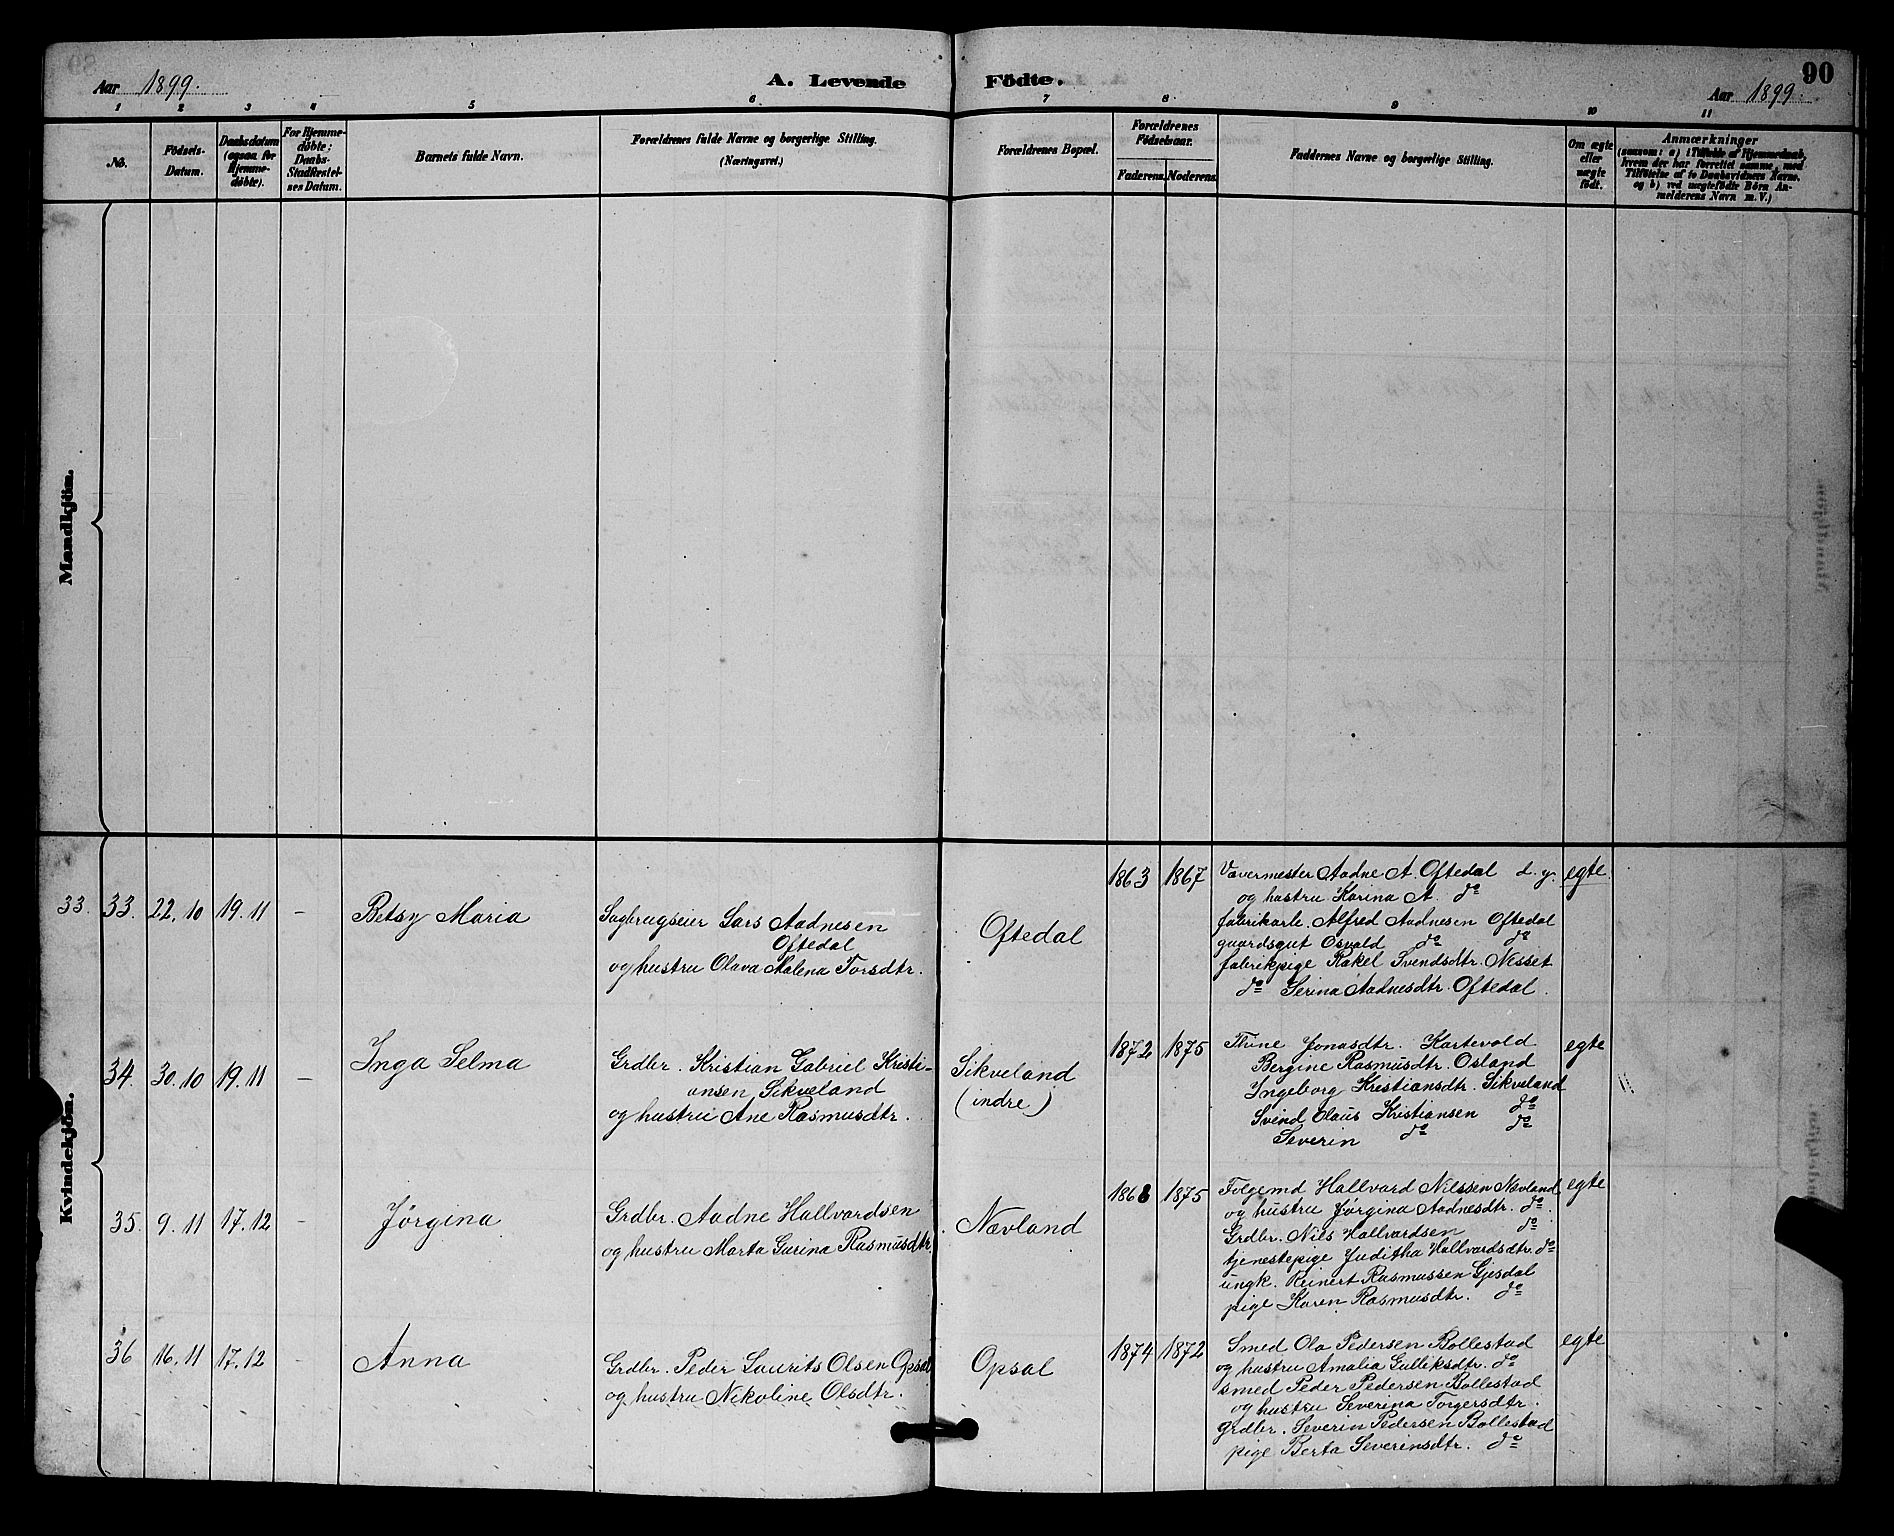 Aar 1899.
A. Levende Födte.
90
Aar 1899.
1 2 3 4 5 6 7 8 9 10 11
No.
Födsels-
Datum.
Daabsdatum
(ogsaa for
Hjemme-
døbte).
For Hjemme-
døbte;
Daabs-
Stadfæstel-
ses Datum.
Barnets fulde Navn.
Forældrenes fulde Navne og borgerlige Stilling.
(Næringsvei.)
Forældrenes Bopæl.
Forældrenes
Födselsaar.
Faderens. Moderens.
Faddernes Navne og borgerlige Stilling.
Om ægte
eller
uægte
født.
Anmærkninger
(saasom: a) i Tilfælde af Hjemmedaab,
hvem der har forrettet samme, med
Tilföielse af to Daabsvidners Navne,
og b) ved uægtefödte Börn An-
melderens Navn m. V.)
Mandkjön.
Kvindekjön.
33. 33. 22.10 19.11 –
Betsy Maria
Sagbrugseier Lars Aadnesen
Oftedal
og hustru Olava Malena Torsdtr.
Oftedal
1863 1867
Vævermester Aadne A. Oftedal d. y.
og hustru Karina A. do
fabrikarb. Alfred Aadnesen Oftedal
gaardsgut Osvald do do
fabrikpige Rakel Svendsdtr. Nesset
do Serina Aadnesdtr. Oftedal.
egte.
34. 30.10 19.11 –
Inga Selma
Grdbr. Kristian Gabriel Kristi-
ansen Sikveland
og hustru Ane Rasmusdtr.
Sikveland
(indre)
1872 1875
Thine Jonasdtr. Kartevold
Bergine Rasmusdtr. Osland
Ingeborg Kristiansdtr. Sikveland
Svend Olaus Kristiansen do
Severin do do
egte
35. 9.11 17.12 –
Jørgina
Grdbr. Aadne Hallvardsen
og hustru Marta Gurina Rasmusdtr.
Nævland
1868 1875
Folgemd Hallvard Nilssen Nævland
og hustru Jørgina Aadnesdtr. do.
Grdbr. Nils Hallvardsen do
tjenestepige Juditha Hallvardsdtr. do
ungk. Reinert Rasmussen Gjesdal
pige Karen Rasmusdtr. do
egte
36 16.11 17.12 –
Anna
Grdbr. Peder Laurits Olsen Opsal
og hustru Nikoline Olsdtr.
Opsal
1874 1872
Smed Ola Pedersen Bollestad
og hustru Amalia Gulliksdtr. do
smed Peder Pedersen Bollestad
og hustru Severina Torgersdtr.
Grdbr. Severin Pedersen Bollestad
pige Berta Severinsdtr. do
egte